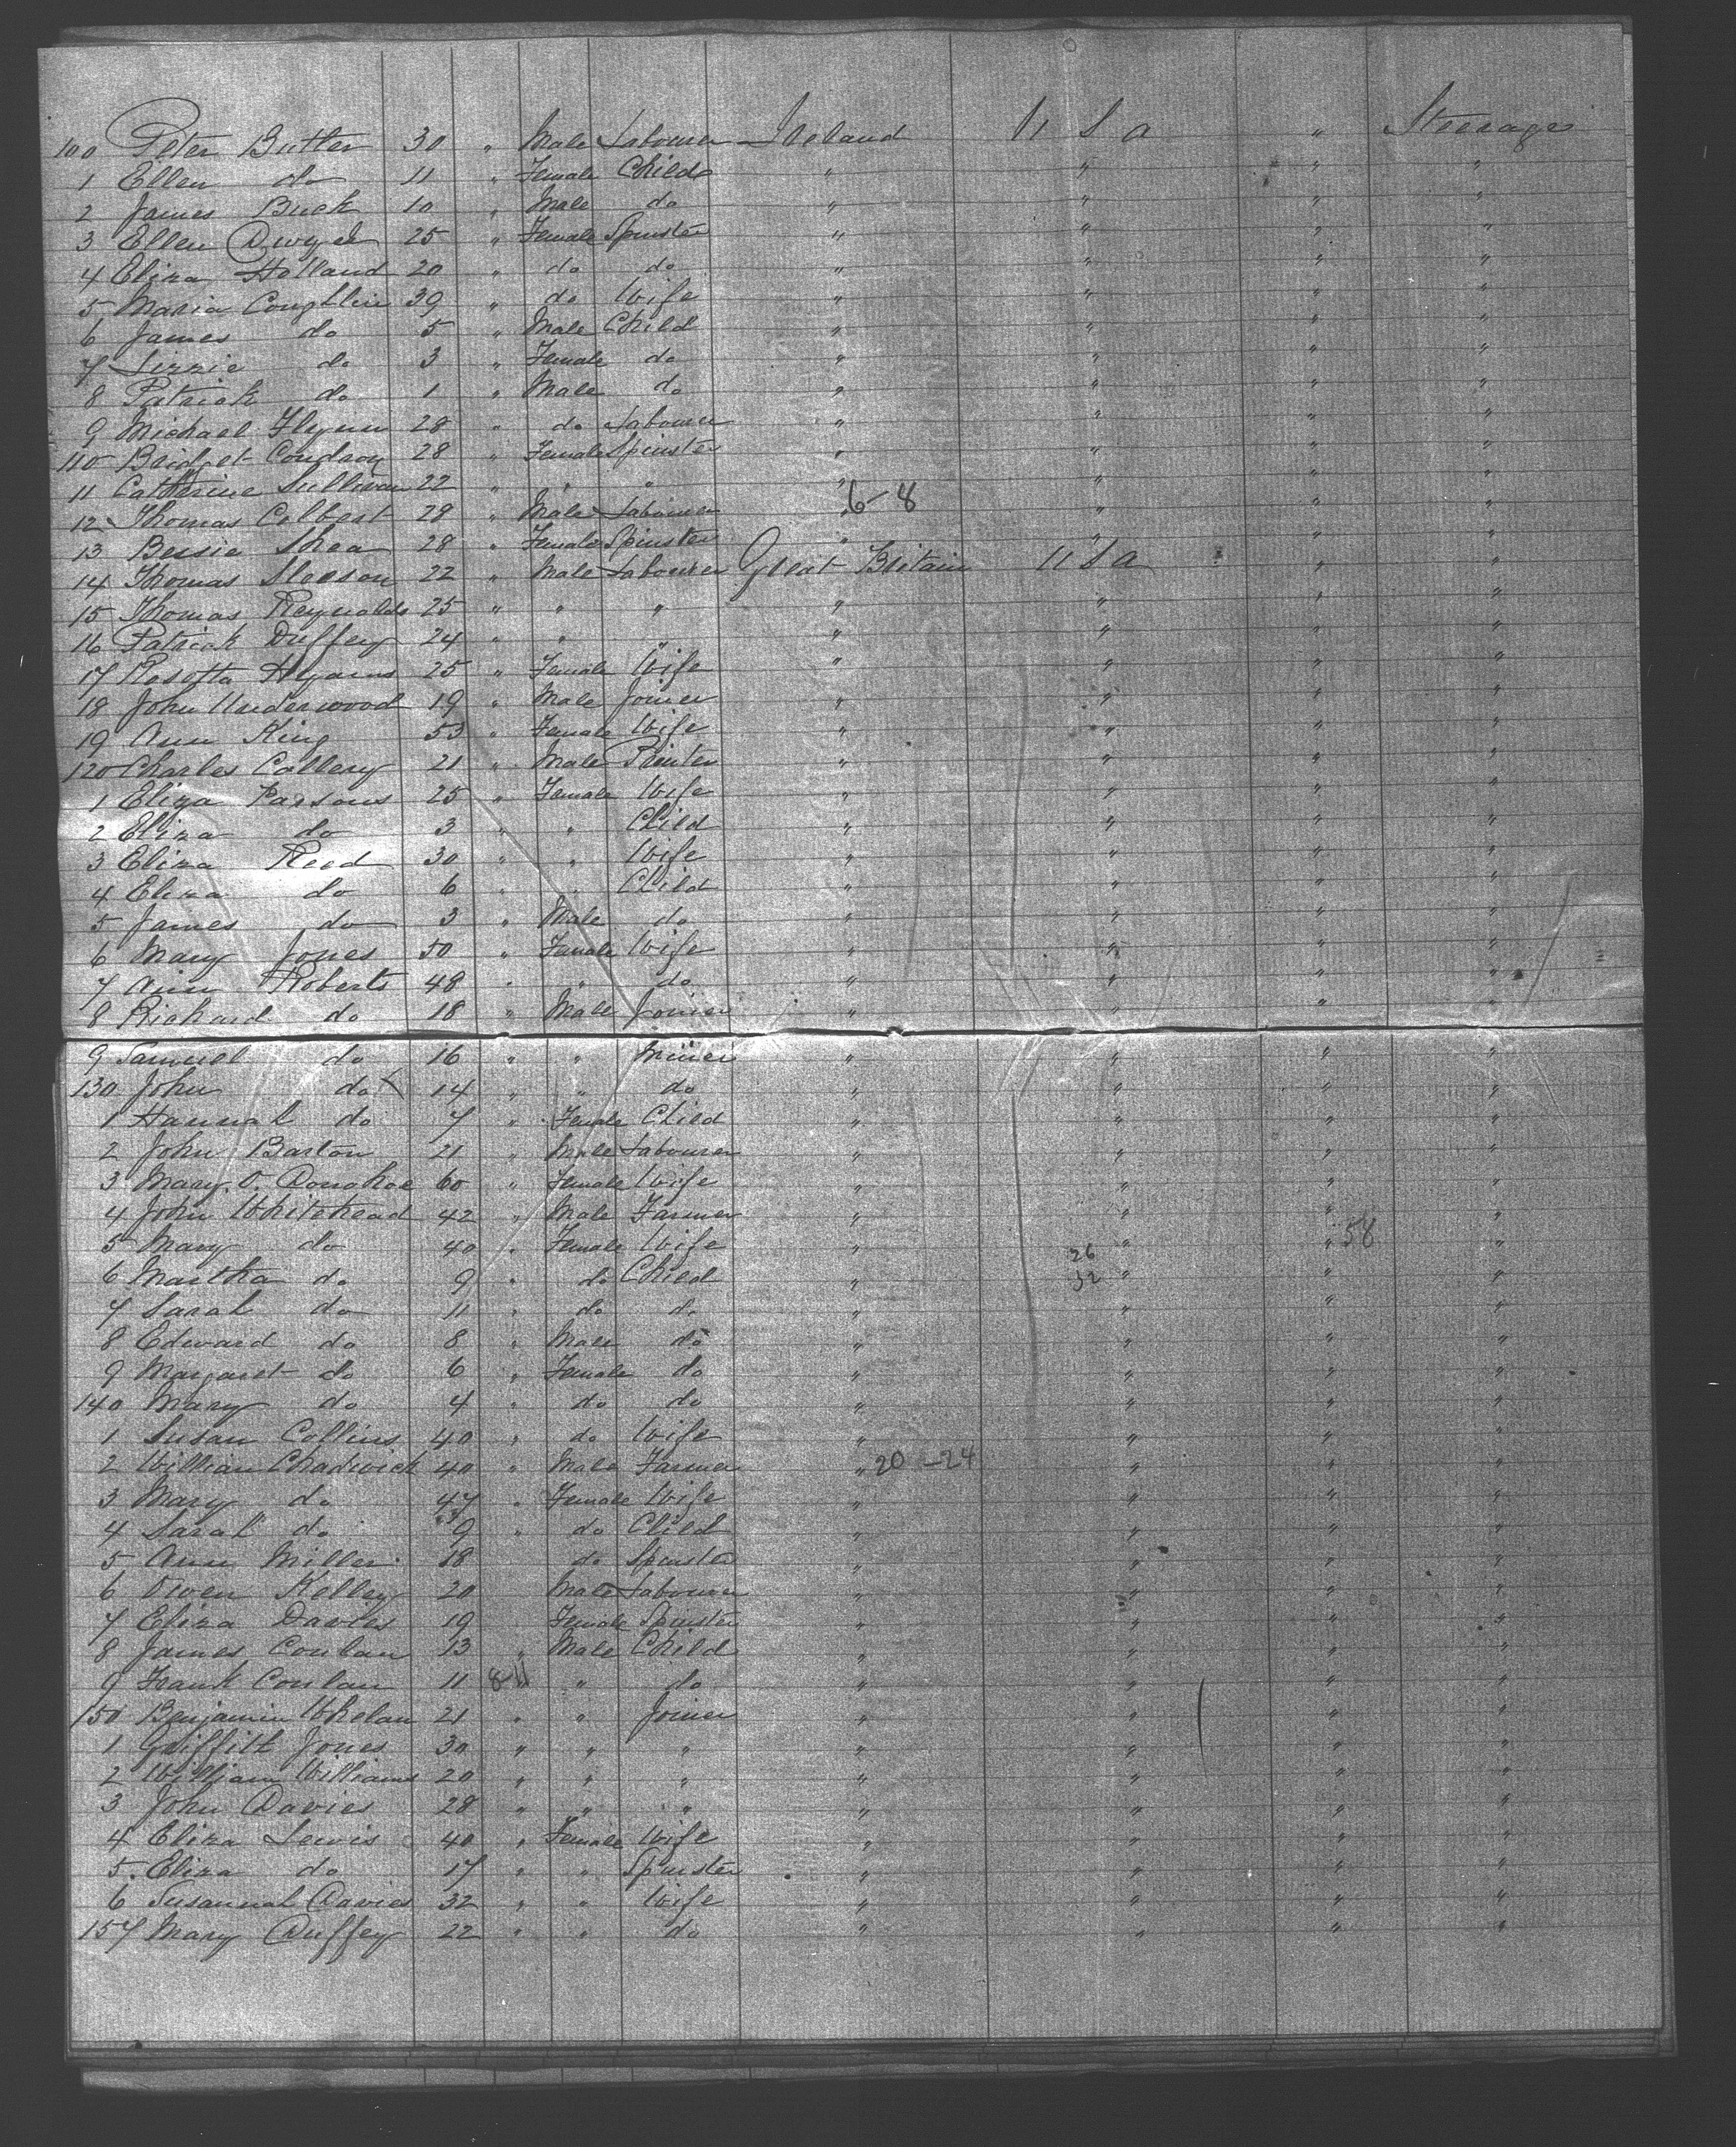 100 Peter Butler 30 " Male Labourer Ireland U S A " Steerage
1 Ellen do 11 " Female Child " " " "
2 James Buck 10 " Male do " " " "
3 Ellen Dwyer 25 " Female Spinster " " " "
4 Eliza Holland 20 " do do " " " "
5 Maria Coughlin 39 " do Wife " " " "
6 James do 5 " Male Child " " " "
7 Lizzie do 3 " Female do " " " "
8 Patrick do 1 " Male do " " " "
9 Michael Flynn 28 " do Labourer " " " "
110 Bridget 28 " Female Spinster " " " "
11 Catherine Sullivan 22 " " " " " " "
12 Thomas Colbert 28 " Male Labourer " 6-8 " " "
13 Bessie Shea 28 " Female Spinster " " " "
14 Thomas 22 " Male Labourer Great Britain U S A " "
15 Thomas Reynolds 25 " " " " " " "
16 Patrick Duffey 24 " " " " " " "
17 Rosetta Hyams 25 " Female Wife " " " "
18 John Underwood 19 " Male Joiner " " " "
19 Ann King 53 " Female Wife " " " "
120 Charles Callery 21 " Male Printer " " " "
1 Eliza Parsons 25 " Female Wife " " " "
2 Eliza do 3 " " Child " " " "
3 Eliza Reed 30 " " Wife " " " "
4 Eliza do 6 " " Child " " " "
5 James do 3 " Male do " " " "
6 Mary Jones 50 " Female Wife " " " "
7 Ann Roberts 48 " " do " " " "
8 Richard do 18 " Male Joiner " " " "
9 Samuel do 16 " " Miner " " " "
130 John do 14 " " do " " " "
1 Hannah do 7 " Female Child " " " "
2 John Barton 21 " Male Labourer " " " "
3 Mary O. Donahoe 60 " Female Wife " " " "
4 John Whitehead 42 " Male Farmer " " " "
5 Mary do 40 " Female Wife " 26 " " 58 "
6 Martha do 9 " do Child " 32 " " "
7 Sarah do 11 " do do " " " "
8 Edward do 8 " Male do " " " "
9 Margaret do 6 " Female do " " " "
140 Mary do 4 " do do " " " "
1 Susan Collins 40 " do Wife " " " "
2 William Chadwick 40 " Male Farmer " 20 -24 " " "
3 Mary do 47 " Female Wife " " " "
4 Sarah do 9 " do Child " " " "
5 Ann Miller 18 do Spinster " " " "
6 Owen Kelley 20 Male Labourer " " " "
7 Eliza Davies 19 Female Spinster " " " "
8 James Conlan 13 " Male Child " " " "
9 Frank Conlan 11 8-11 " do " " " "
150 Benjamin Whelan 21 " " Joiner " " " "
1 Griffith Jones 30 " " " " " " "
2 William Williams 20 " " " " " " "
3 John Davies 28 " " " " " " "
4 Eliza Lewis 40 " Female Wife " " " "
5 Eliza do 17 " " Spinster " " " "
6 Susannah Davies 32 " " Wife " " " "
157 Mary Duffey 22 " " do " " " "